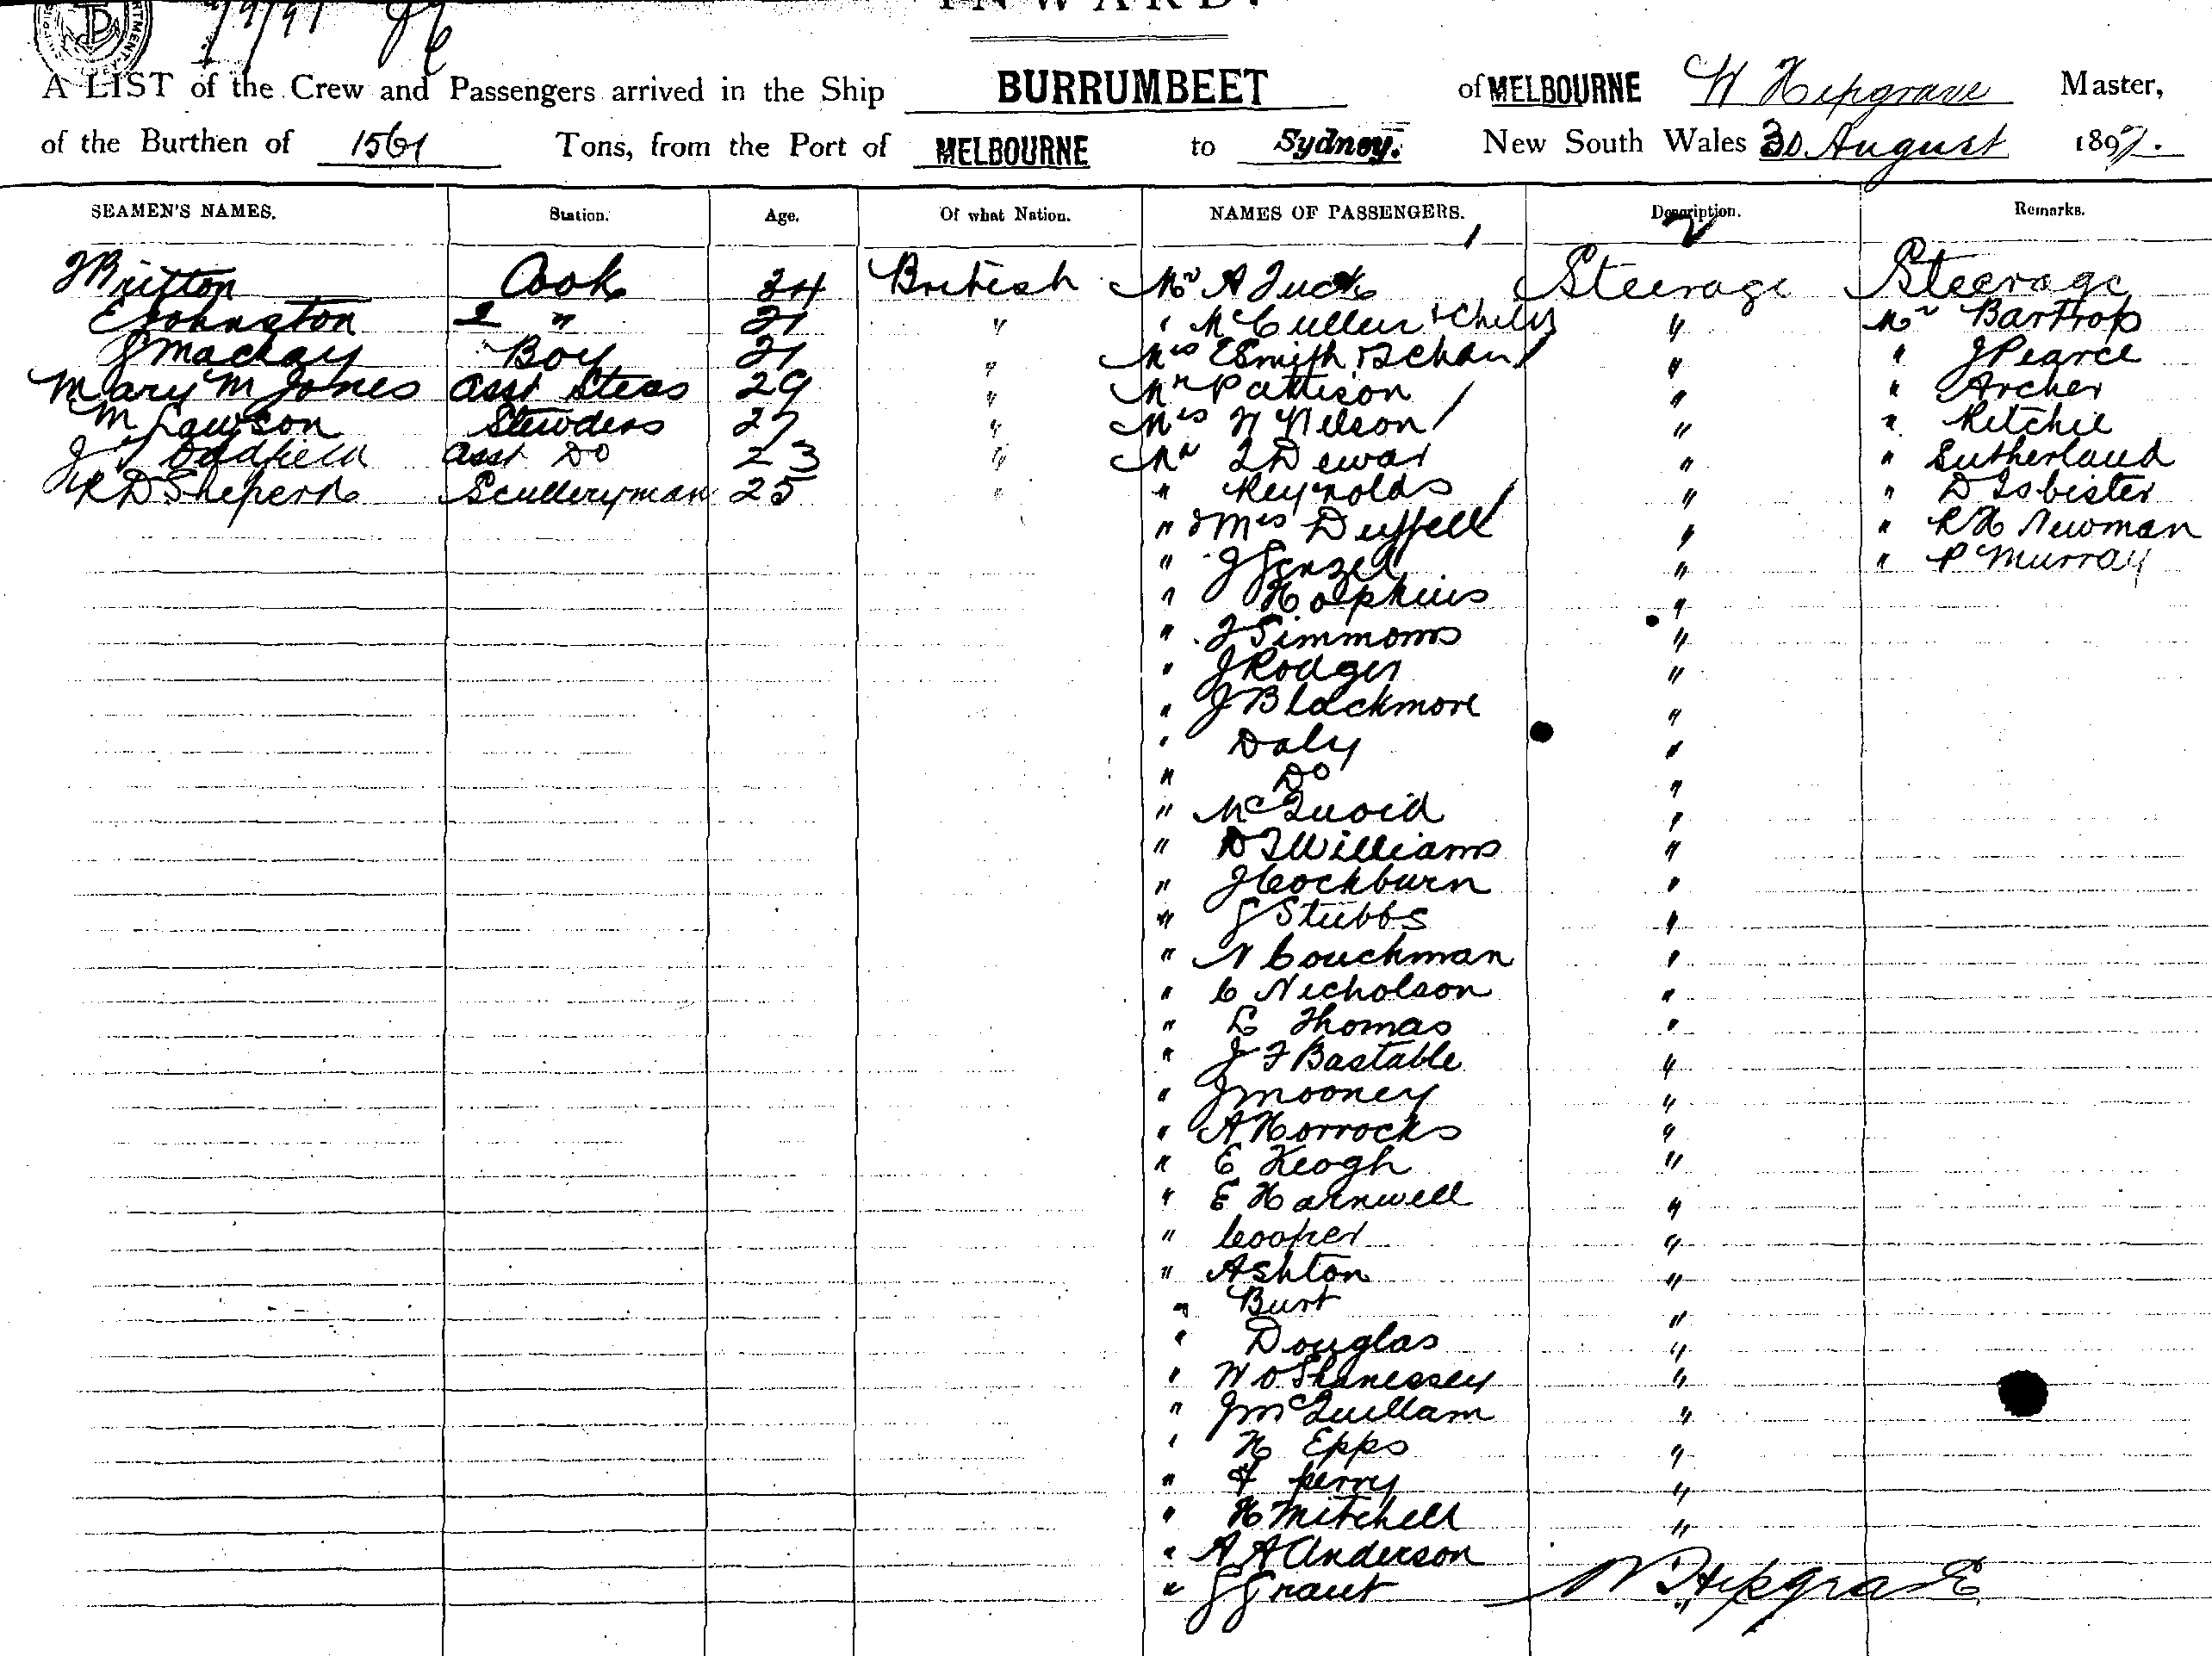 INWARD.
A LIST of the Crew and Passengers arrived in the Ship BURRUMBEET of MELBOURNE W Hipgrave Master,
of the Burthen of 1561 Tons, from the Port of MELBOURNE to Sydney. New South Wales 30 August 1897.
SEAMEN'S NAMES. Station. Age. Of what Nation. NAMES OF PASSENGERS. Description. Remarks.
J Britton Cook 24 British Mr A Tuck Steerage Steerage
E Johnston 2 " 21 " " McCullen & Child " Mr Bartrop
J Mackay Boy 21 " Mrs E Smith & 2 Chdn " " J Pearce
Mary M Jones Asst Stess 29 " Mr Pattison " " Archer
M Lawson Stewdess 27 " Mrs N Nelson " " Ritchie
J Oddfield Asst Do 23 " Mr T Dewar " " Sutherland
R D Sheperd Sculleryman 25 " " Reynolds " " D Isbister
" & Mrs Duffell " " R H Newman
" J Jenzel " " P Murray
" Hopkins "
" J Simmons "
" J Rodger "
" J Blackmore "
" Daly "
" Do "
" McQuoid "
" D T Williams "
" J Cockburn "
" J Stubbs "
" N Couchman "
" C Nicholson "
" L Thomas "
" J F Bastable "
" J Mooney "
" A Horrocks "
" E Keogh "
" E Harnwell "
" Cooper "
" Ashton "
" Burt "
" Douglas "
" W O Shanessey "
" J McQuillam "
" H Epps "
" F Perry "
" H Mitchell "
" A A Anderson "
" J Grant " W Hipgrave